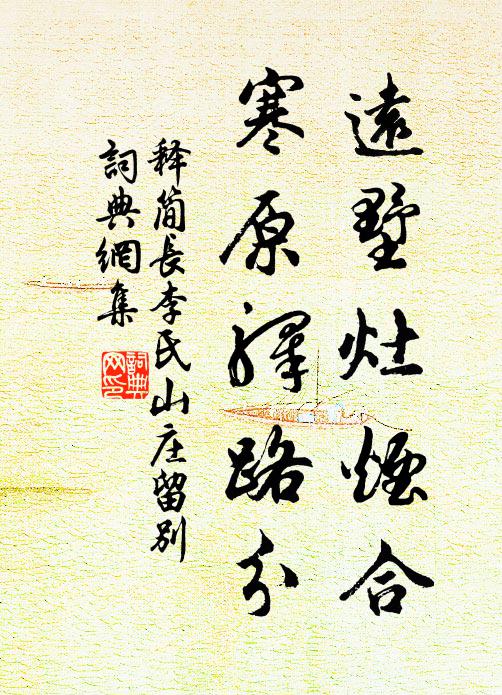 遠墅灶煙合
寒原驛路分
释简長李氏山庄留别
詞典網集
詞典网印